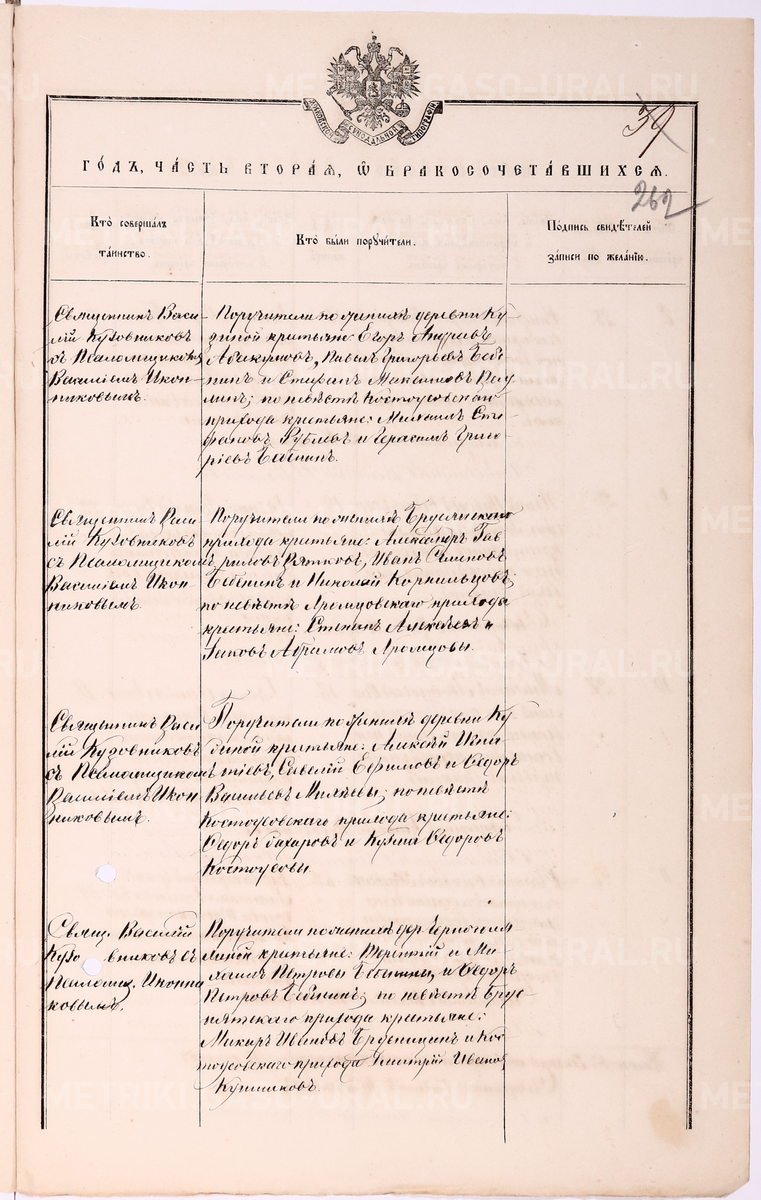 МОСКОВСКОЙ СѴНОДАЛЬНОЙ ТИПОГРАФІИ
39
ГО́ДЪ, ЧА́СТЬ ВТОРА́Я, Ѡ БРАКОСОЧЕТА́ВШИХСЯ.
262
Кто̀ соверша́лъ
та́инство.
Кто̀ бы́ли поручи́тели.
По́дпись свидѣ́телей
за́писи по жела́нїю.
Священникъ Васи-
лій Кузовниковъ
съ Псаломщикомъ
Василіемъ Икон-
никовымъ.
Поручители по женихѣ деревни Ку-
диной крестьяне Егоръ Андреевъ
Абакумовъ, Павелъ Григорьевъ Бабе-
нинъ и Стефанъ Максимовъ
по невѣстѣ Костоусовскаго
прихода крестьяне: Михаилъ Сте-
фановъ и Герасимъ Григо-
рьевъ
Священникъ Васи-
лій Кузовниковъ
съ Псаломщикомъ
Василіемъ Икон-
никовымъ.
Поручители по женихѣ Бруснятскаго
прихода крестьяне: Александръ Гав-
риловъ Иванъ Семеновъ
и Николай Корнильцовъ,
по невѣстѣ прихода
крестьяне: Степанъ Алексѣевъ и
Яковъ Абрамовъ
Священникъ Васи-
лій Кузовниковъ
съ Псаломщикомъ
Василіемъ Икон-
никовымъ.
Поручители по женихѣ деревни Ку-
диной крестьяне: Алексѣй Игна-
тіевъ, Савелій Ефимовъ и Ѳедоръ
Васильевъ по невѣстѣ
Костоусовскаго прихода крестьяне:
Ѳедоръ Захаровъ и Кузма Ѳедоровъ
Костоусовы.
Свящ. Василій
Кузовниковъ съ
Псаломщ. Иконни-
ковымъ.
Поручители по женихѣ дер.
крестьяне: Терентій и Ми-
хаилъ Петровы и Ѳедоръ
Петровъ по невѣстѣ Брус-
нятскаго прихода крестьяне:
Макаръ Ивановъ Брусницынъ и Кос-
тоусовскаго прихода Дмитрій Ивановъ
METRIKI.GASO-URAL.RU